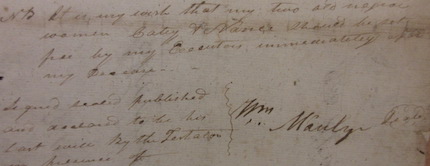 NB It is my wish that my two old negroe
women Catey & Nance should be set
free by my Executors immediately after
my Decease. —
Signed sealed published
and declared to be his
last will By the Testator
in presence of
Wm. Mauly